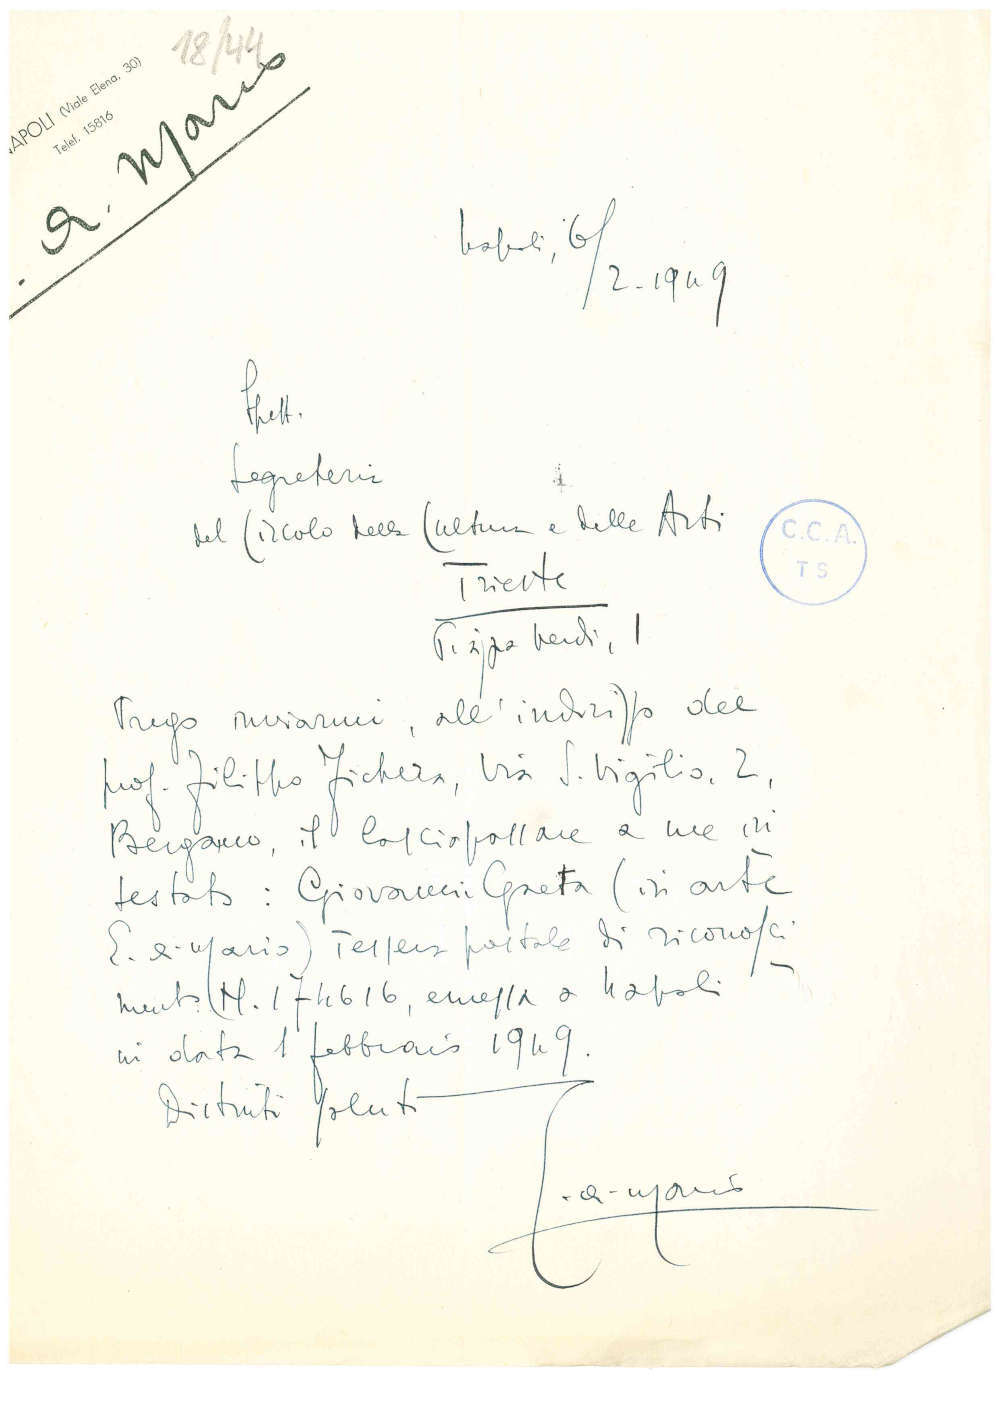 18/44
NAPOLI (Viale Elena, 30)
Telef. 15816
. A. Mario
Napoli, 6/2-1949
Spett.
Segreteria
del Circolo della Cultura e delle Arti
Trieste
Piazza Verdi, 1
C.C.A.
TS
Prego inviarmi, all'indirizzo del
prof. Filippo Fichera, Via S. Vigilio, 2,
Bergamo, il lasciapassare a me in
testato: Giovanni Gaeta (in arte
E. A. Mario) Tessera postale di riconosci
mento (N. 174616, emessa a Napoli
in data 1 febbraio 1949.
Distinti saluti
E. A. Mario